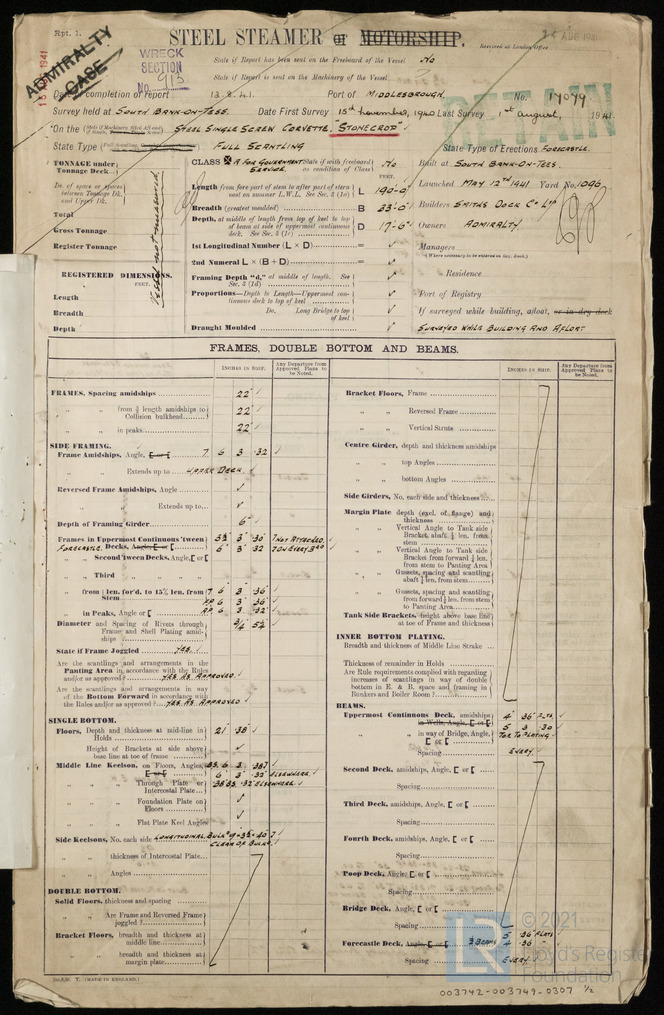 Rpt. 1.
STEEL STEAMER or MOTORSHIP.
ADMIRALTY
CASE
WRECK
SECTION
No. 913
Received at London Office
State if Report has been sent on the Freeboard of the Vessel No
State if Report is sent on the Machinery of the Vessel
Date of completion of report 13.8.41. Port of MIDDLESBROUGH. No. 17079
RETAIN
Survey held at SOUTH BANK-ON-TEES. Date First Survey 15th November, 1940 Last Survey 1st August, 1941.
On the STEEL SINGLE SCREW CORVETTE, "STONECROP"
State Type FULL SCANTLING State Type of Erections FORECASTLE.
TONNAGE under
Tonnage Deck
Do. of space or spaces
between Tonnage Dk.
and Upper Dk.
Total
Gross Tonnage
Register Tonnage
REGISTERED DIMENSIONS.
FEET.
Length
Breadth
Depth
CLASS FOR GOVERNMENT SERVICE. State if with freeboard as condition of Class No
Length from fore part of stem to after part of stern post on summer L.W.L. See Sec. 3 (1a) L 190-0"
Breadth (greatest moulded) B 33-0"
Depth, at middle of length from top of keel to top of beam at side of uppermost continuous deck. See Sec. 3 (1c) D 17-6"
1st Longitudinal Number (L × D) =
2nd Numeral L × (B + D) =
Framing Depth "d," at middle of length. See Sec. 3 (1d)
Proportions—Depth to Length—Uppermost continuous deck to top of keel
Do. Long Bridge to top of keel
Draught Moulded
Built at SOUTH BANK-ON-TEES.
Launched MAY 12TH 1941 Yard No. 1096
Builders SMITHS DOCK CO LTD
Owners ADMIRALTY
Managers
(Where necessary to be entered on Reg. Book.)
Residence
Port of Registry
If surveyed while building, afloat, or in dry dock
SURVEYED WHILE BUILDING AND AFLOAT
FRAMES, DOUBLE BOTTOM AND BEAMS.
INCHES IN SHIP.
Any Departure from Approved Plans to be Noted.
INCHES IN SHIP.
Any Departure from Approved Plans to be Noted.
FRAMES, Spacing amidships 22"
" " from ⅗ length amidships to Collision bulkhead 22"
" " in peaks 22"
SIDE FRAMING.
Frame Amidships, Angle, [ or [ 7 6 3 .32
" " Extends up to UPPER DECK.
Reversed Frame Amidships, Angle
" " Extends up to
Depth of Framing Girder 6"
Frames in Uppermost Continuous 'tween Decks, Angle, [ or [ 3½ 3 .30
FORECASTLE 6 3 .32
" " Second 'tween Decks, Angle, [ or [
" " Third " "
" " from ⅕ len. for'd. to 15% len. from Stem 7 6 3 .36
" " in Peaks, Angle or [ F.P. 6 3 .36
A.P. 6 3 .32
Diameter and Spacing of Rivets through Frame and Shell Plating amidships ¾ 5¼
State if Frame Joggled YES.
Are the scantlings and arrangements in the Panting Area in accordance with the Rules and/or as approved? YES AS APPROVED.
Are the scantlings and arrangements in way of the Bottom Forward in accordance with the Rules and/or as approved? YES AS APPROVED
SINGLE BOTTOM.
Floors, Depth and thickness at mid-line in Holds 21 .38
Height of Brackets at side above base line at toe of frame
Middle Line Keelson, on Floors, Angles, [ or [
6 3 .32 ELSEWHERE.
" " Through Plate or Intercostal Plate .32 ELSEWHERE.
" " Foundation Plate on Floors
" " Flat Plate Keel Angles
Side Keelsons, No. each side LONGITUDINAL BULK
CLEAR OF BULK
" " thickness of Intercostal Plate
" " Angles
DOUBLE BOTTOM.
Solid Floors, thickness and spacing
" " Are Frame and Reversed Frame joggled?
Bracket Floors, breadth and thickness at middle line
" " breadth and thickness at margin plate
Bracket Floors, Frame
" " Reversed Frame
" " Vertical Struts
Centre Girder, depth and thickness amidships
" " top Angles
" " bottom Angles
Side Girders, No. each side and thickness
Margin Plate depth (excl. of flange) and thickness
" " Vertical Angle to Tank side Bracket abaft ⅕ len. from stem
" " Vertical Angle to Tank side Bracket from forward ⅕ len. from stem to Panting Area
" " Gussets, spacing and scantling abaft ⅕ len. from stem
" " Gussets, spacing and scantling from forward ⅕ len. from stem to Panting Area
Tank Side Brackets, height above base line at toe of Frame and thickness
INNER BOTTOM PLATING.
Breadth and thickness of Middle Line Strake
Thickness of remainder in Holds
Are Rule requirements complied with regarding increases of scantlings in way of double bottom in E. & B. space and framing in Bunkers and Boiler Room?
BEAMS.
Uppermost Continuous Deck, amidships in Wells, Angle, [ or [ 4" .36 PLTS.
" " in way of Bridge, Angle, [ or [ 5 3 .30
Spacing EVERY
Second Deck, amidships, Angle, [ or [
Spacing
Third Deck, amidships, Angle, [ or [
Spacing
Fourth Deck, amidships, Angle, [ or [
Spacing
Poop Deck, Angle, [ or [
Spacing
Bridge Deck, Angle, [ or [
Spacing
Forecastle Deck, Angle, [ or [ 5" .36 PLATS
4" .36 "
Spacing EVERY
T. (MADE IN ENGLAND.)
© 2021
LR
Lloyd's Register
Foundation
003742-003749-0307 ½